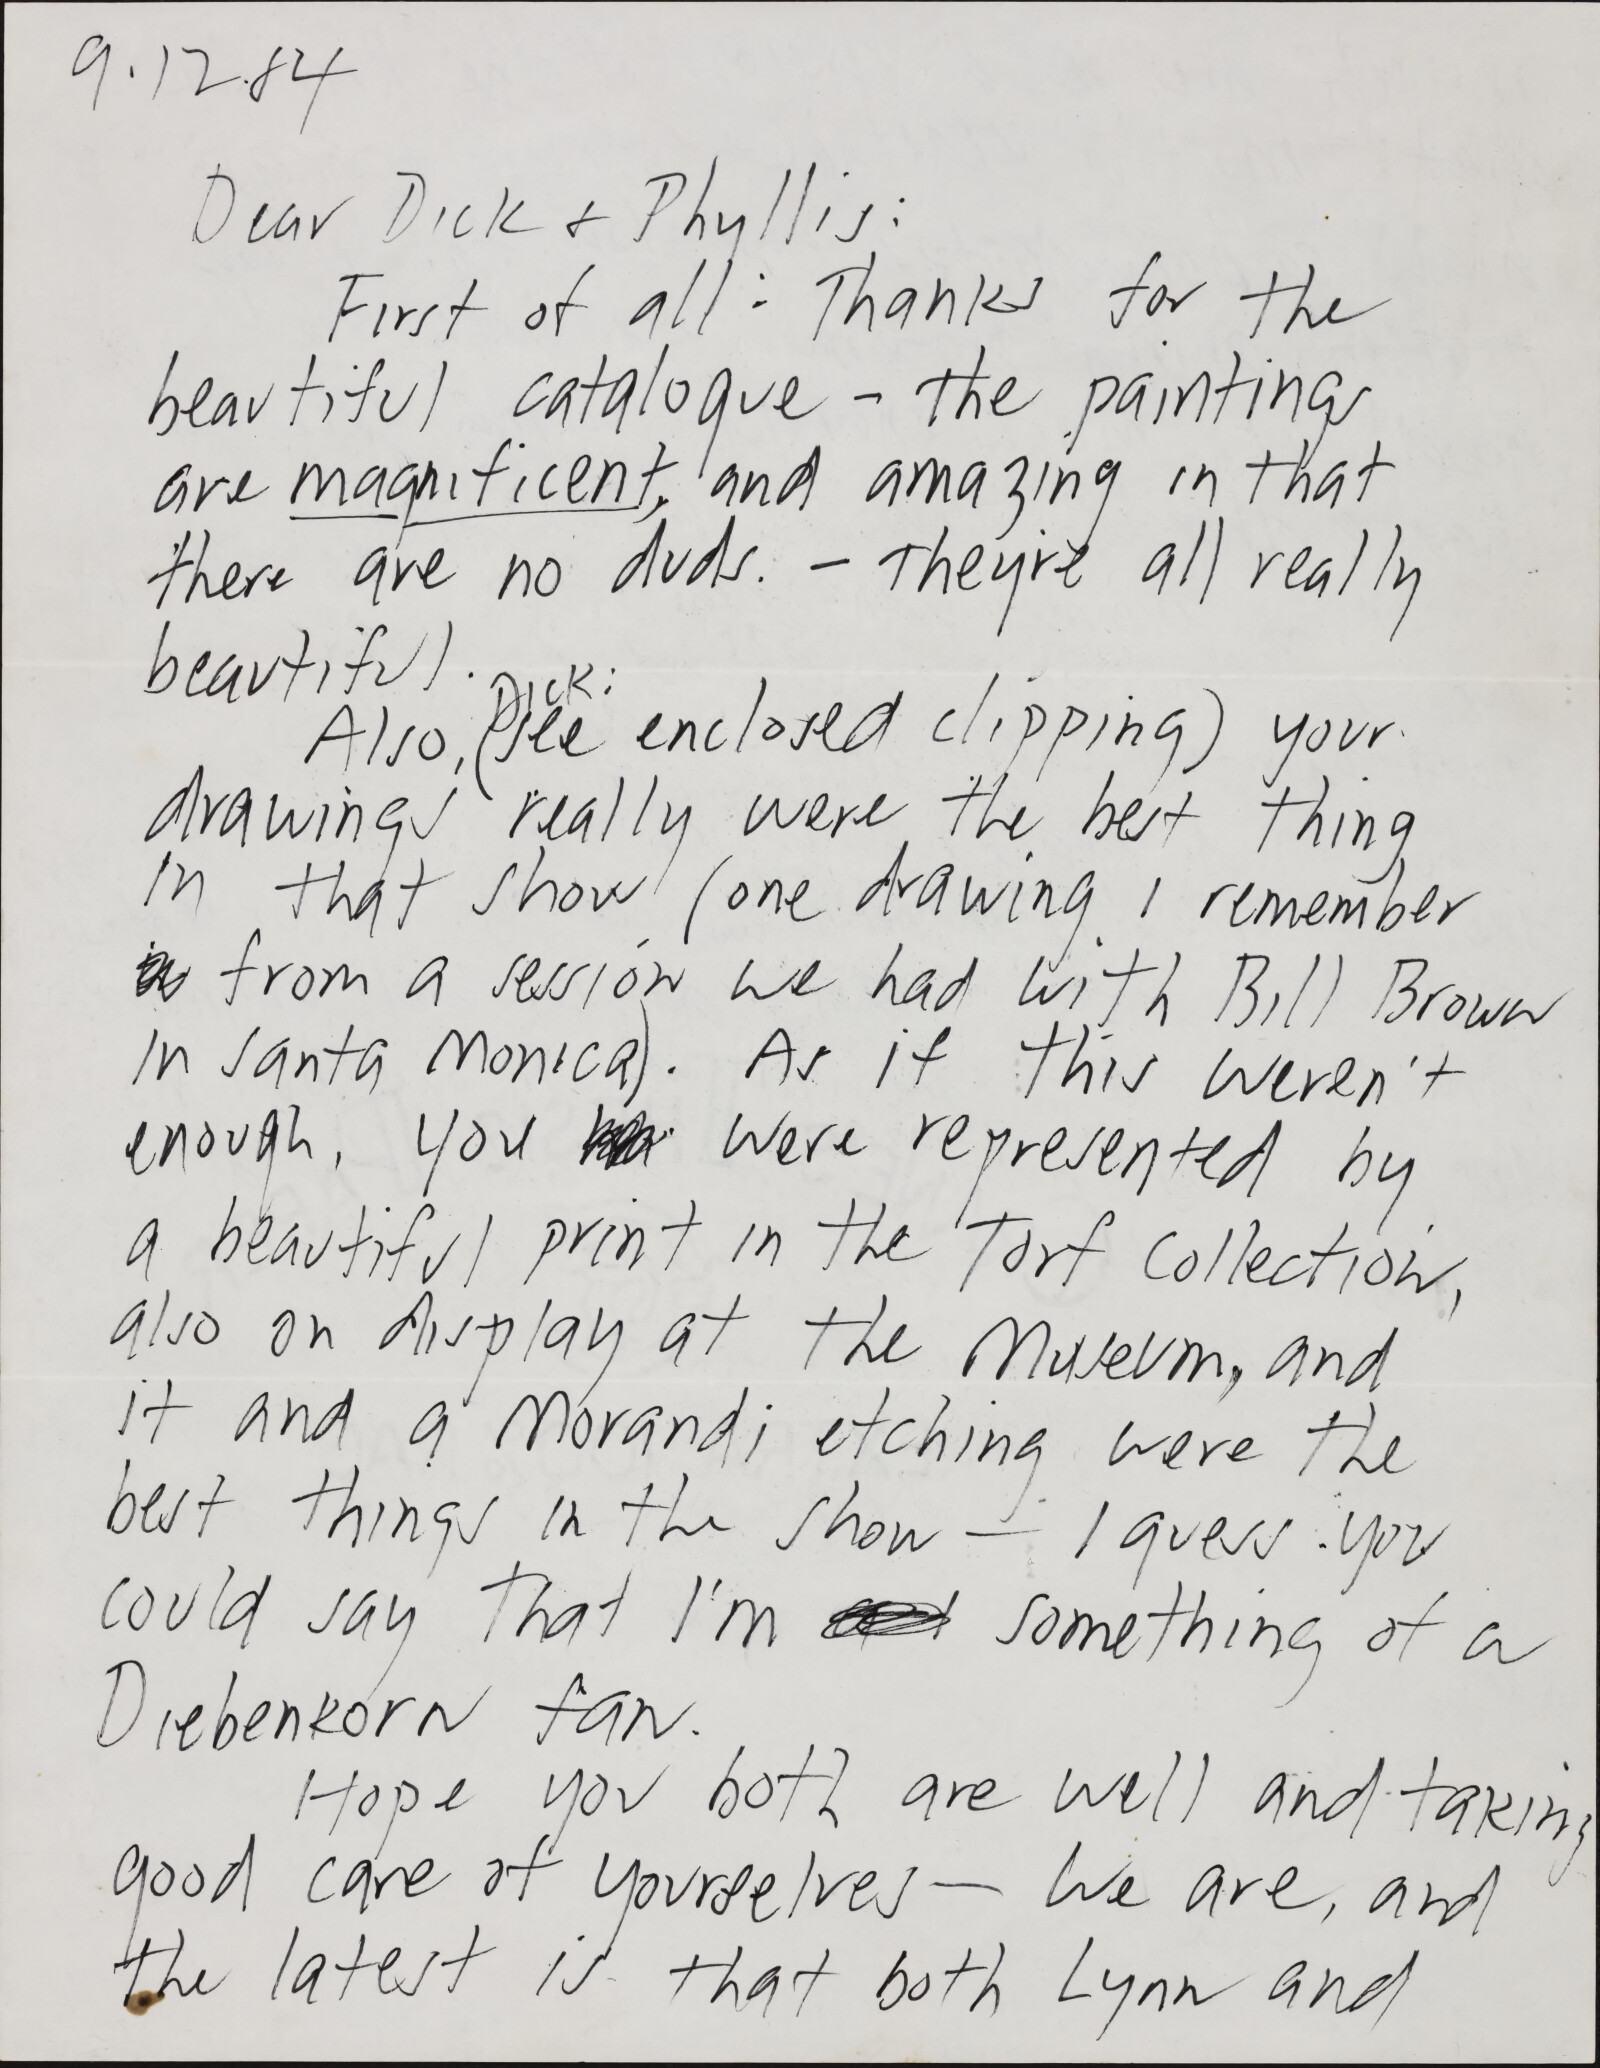 9.12.84
Dear Dick & Phyllis:
First of all: Thanks for the
beautiful catalogue - the paintings
are magnificent, and amazing in that
there are no duds. - They're all really
beautiful.
Dick:
Also, (see enclosed clipping) your
drawings really were the best thing
in that show (one drawing I remember
from a session we had with Bill Brown
in Santa Monica). As if this weren't
enough, you were represented by
a beautiful print in the Torf Collection,
also on display at the Museum, and
it and a Morandi etching were the
best things in the show — I guess you
could say that I'm something of a
Diebenkorn fan.
Hope you both are well and taking
good care of yourselves — We are, and
the latest is that both Lynn and